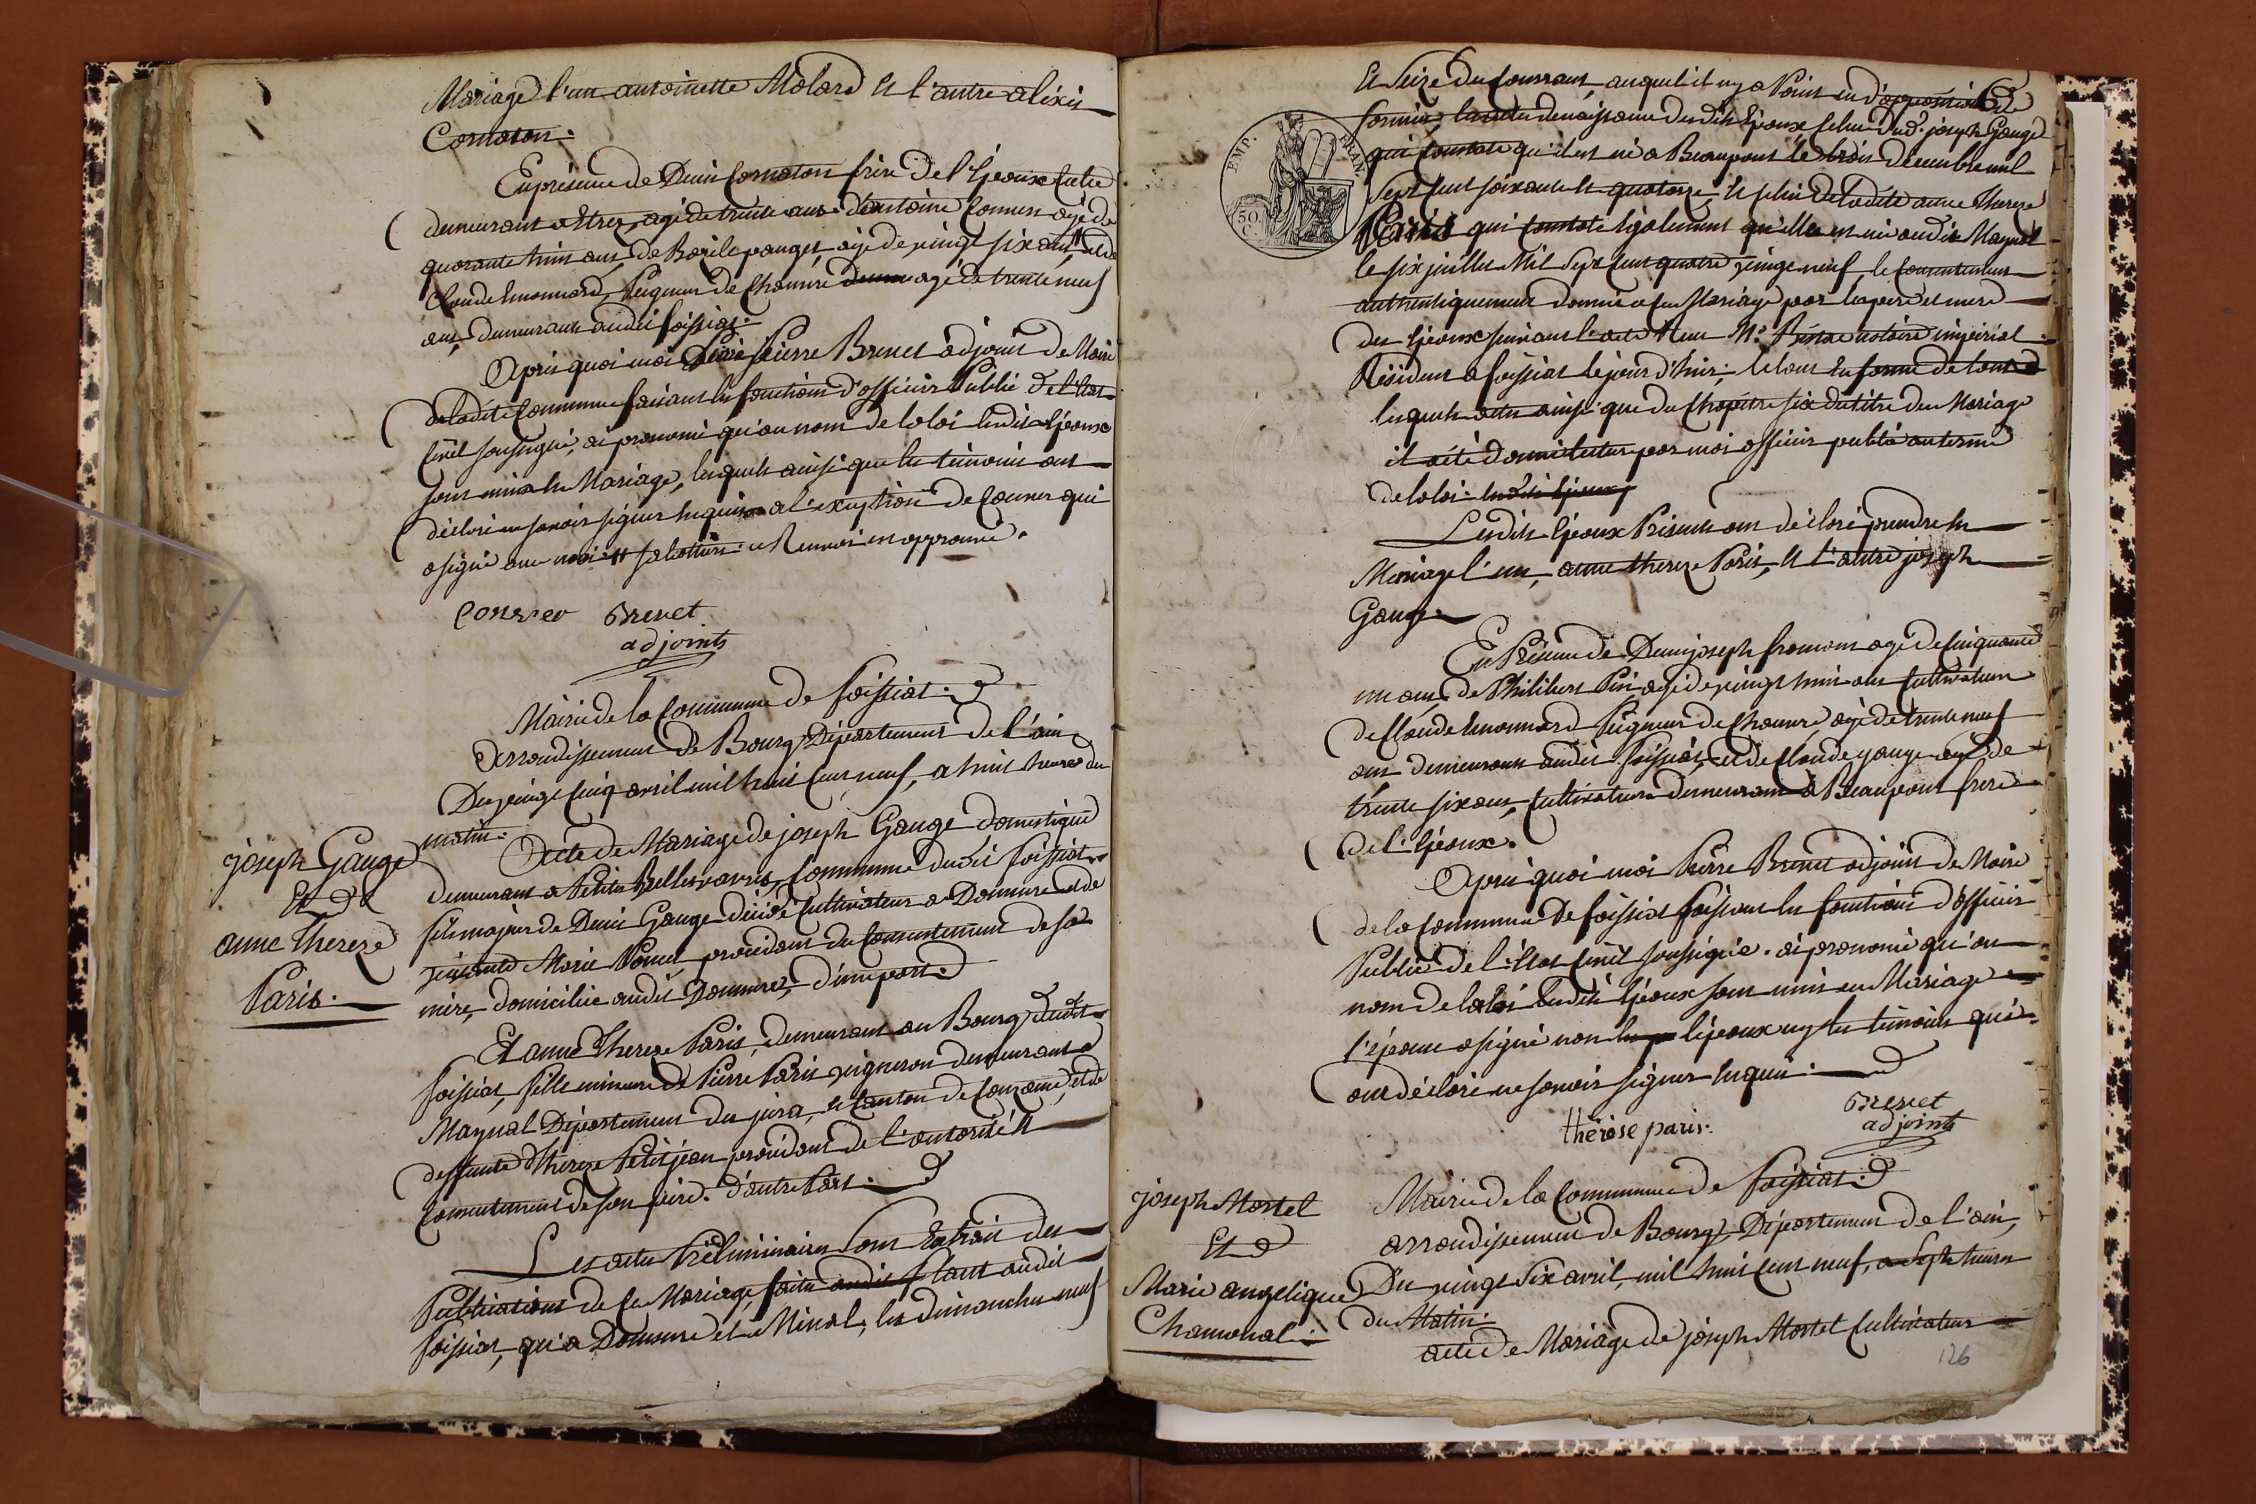 Mariage l'un antoinette Molard Et l'autre alexis
Cornaton.
En présence de Denis Cornaton frère de l'Epoux Cultr
demeurant a Etrez, agé de trente ans d'antoine Connen agé de
quarante huit ans, de Basile pauget, agé de vingt six ans, et de
Claude hmonnard, Peigneur de Chanvre agé de trente neuf
ans, demeurans audit foissiat.
Après quoi moi Pierre Brenet adjoint de Maire
de ladite Commune faisant les fonctions d'officier Public de l'Etat
Civil soussigné, ai prononcé qu'au nom de la loi lesdits Epoux
sont unis en Mariage, lesquels ainsi que les témoins ont
déclaré ne savoir signer Enquis a l'exception de Connen qui
a signé avec moi le Renvoi en approuvé.
Brenet
adjoint
Mairie de la Commune de foissiat.
Arrondissement de Bourg Département de l'ain
Du vingt Cinq avril mil huit Cent neuf, a huit heures du
matin.
joseph Gauge
Et de
anne Therese
Paris.
Acte de Mariage de joseph Gauge domestique
demeurant a Petites Bellesvavres, Commune dudit foissiat
fils majeur de Denis Gauge décédé Cultivateur a Domsure et de
vivante Marie Ponet procédant du Consentement de sa
mère, domiciliée audit Domsure, d'une part.
Et anne Therese Paris, demeurant au Bourg dudit
foissiat, fille mineure de Pierre Paris vigneron demeurant a
Maynal Département du jura, et Canton de Couzance, et de
deffunte Thereze Petitjean procédant de l'autorité Et
Consentement de son père. d'autre Part.
Les actes Préliminaires sont Extrait des
Publications de Ce Mariage, faites audit
foissiat, qu'a Domsure et a Minal, les dimanches neuf
Et Seize du Courrant, auquel il n'y a Point eu d'opposition de
formée, les actes de naissance desdits Epoux Celui dud. joseph Gauge
qui Constate qu'il est né a Beaupont le trois décembre mil
Sept Cent soixante et quatorze, et Celui de ladite anne Therese
Paris qui Constate également qu'elle est née audit Maynal
le six juillet Mil Sept Cent quatre vingt neuf le Consentement
authentiquement donné a Ce Mariage par les père et mere
des Epoux suivant l'acte Reçu Me notaire impérial
Résident a foissiat le jour d'hier, le tout En forme de toute
lesquels actes ainsi que du Chapitre six du titre du Mariage
il a été donné lecture par moi officier public au terme
de la loi. lesdits Epoux
Lesdits Epoux Présents ont déclaré prendre En
Mariage l'un, anne therese Paris, Et l'autre joseph
Gauge.
En Présence de Denis joseph fromont agé de Cinquante
un ans, de Philibert Pin, agé de vingt huit ans Cultivateurs
de Claude hmonnard Peigneur de Chanvre, agé de trente neuf
ans demeurans audit foissiat, et de Claude gauge agé de
trente six ans, Cultivateur demeurant a Beaupont frere
de l'Epoux.
Après quoi moi Pierre Brenet adjoint de Maire
de la Commune de foissiat faisant les fonctions d'officier
Public de l'Etat Civil soussigné. ai prononcé qu'au
nom de la loi lesdits Epoux sont unis en Mariage
l'épouse a signé non l'époux ny les témoins qui
ont déclaré ne savoir signer Enquis.
thérèse paris.
Brenet
adjoint
EMP. FRAN.
50.
joseph Mortel
Et
Marie angelique
Chamonal.
Mairie de la Commune de foissiat.
arrondissement de Bourg Département de l'ain,
Du vingt Six avril, mil huit Cent neuf, a Sept heures
du Matin.
acte de Mariage de joseph Mortel Cultivateur
126